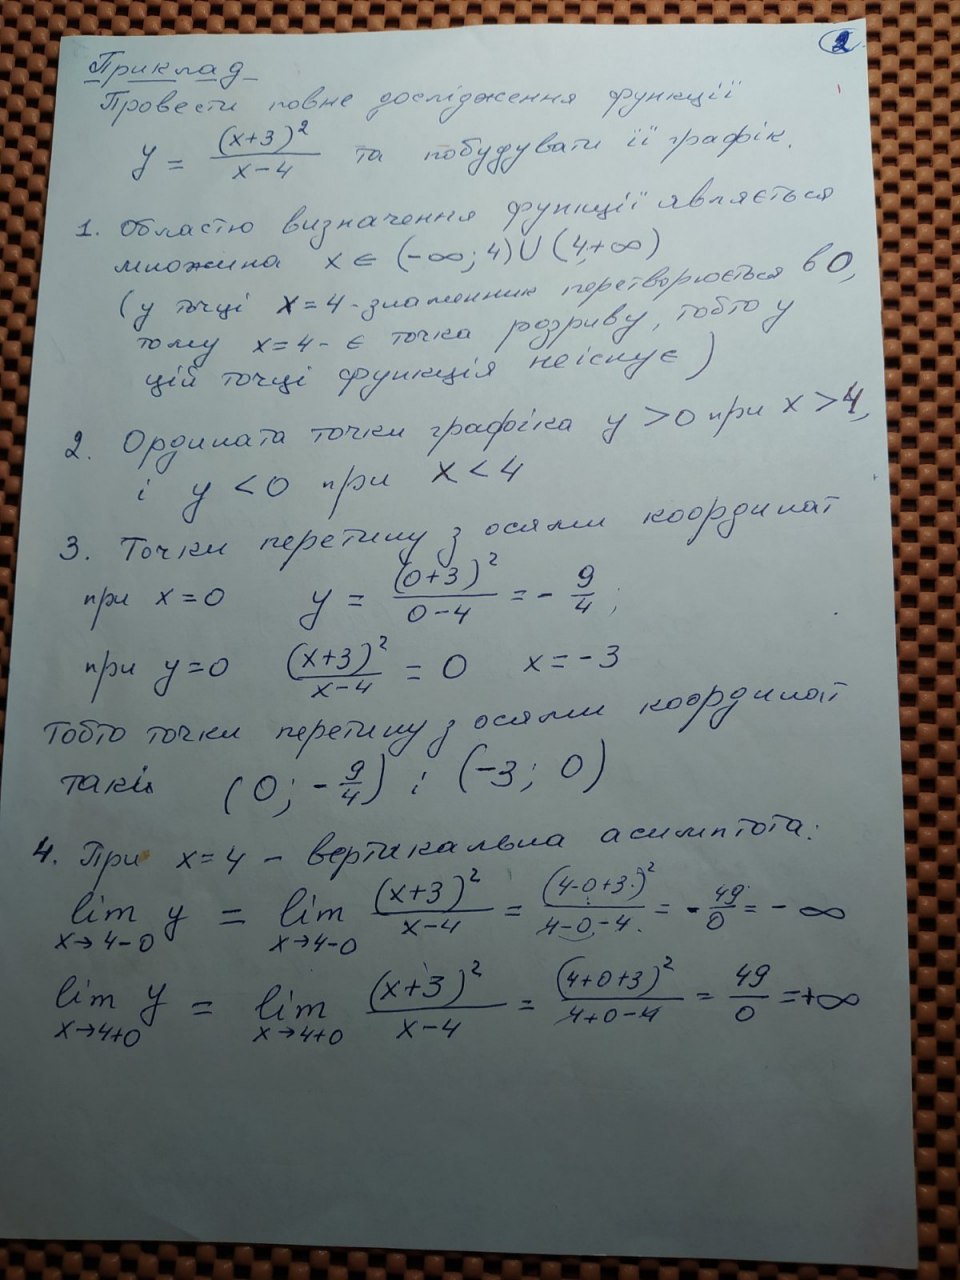 2
Приклад
Провести повне дослідження функції
y = (x+3)²/(x-4) та побудувати її графік.
1. Областю визначення функції являється
множина x ∈ (-∞; 4) ∪ (4; +∞)
(у точці x=4 - знаменник перетворюється в 0,
тому x=4 - є точка розриву, тобто у
цій точці функція неіснує)
2. Ордината точки графіка y > 0 при x > 4,
і y < 0 при x < 4
3. Точки перетину з осями координат
при x=0 y = (0+3)²/(0-4) = - 9/4;
при y=0 (x+3)²/(x-4) = 0 x = -3
Тобто точки перетину з осями координат
такі (0; -9/4) і (-3; 0)
4. При x=4 - вертикальна асимптота:
lim x→4-0 y = lim x→4-0 (x+3)²/(x-4) = (4-0+3)²/(4-0-4) = - 49/0 = - ∞
lim x→4+0 y = lim x→4+0 (x+3)²/(x-4) = (4+0+3)²/(4+0-4) = 49/0 = +∞